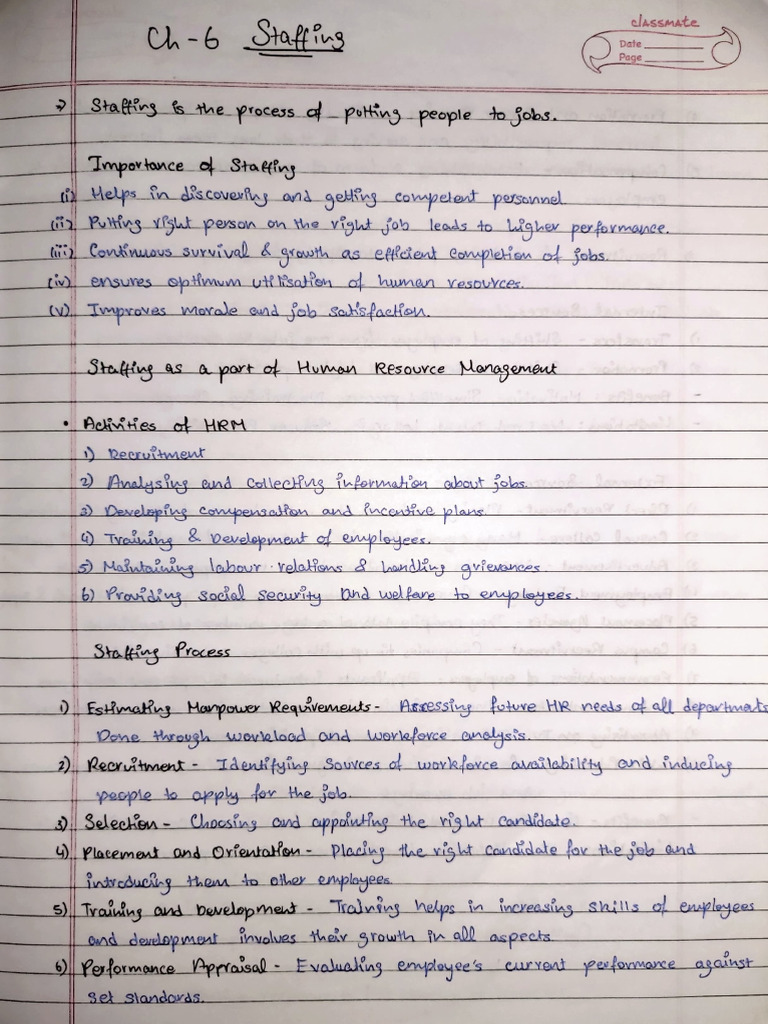 Ch - 6 Staffing
classmate
Date
Page
→ Staffing is the process of putting people to jobs.
Importance of Staffing
(i) Helps in discovering and getting competent personnel
(ii) Putting right person on the right job leads to higher performance.
(iii) Continuous survival & growth as efficient completion of jobs.
(iv) ensures optimum utilisation of human resources.
(v) Improves morale and job satisfaction.
Staffing as a part of Human Resource Management
• Activities of HRM
1) Recruitment
2) Analysing and collecting information about jobs.
3) Developing compensation and incentive plans.
4) Training & Development of employees.
5) Maintaining labour relations & handling grievances.
6) Providing social security and welfare to employees.
Staffing Process
1) Estimating Manpower Requirements - Assessing future HR needs of all departments
Done through workload and workforce analysis.
2) Recruitment - Identifying sources of workforce availability and inducing
people to apply for the job.
3) Selection - Choosing and appointing the right candidate.
4) Placement and Orientation - Placing the right candidate for the job and
introducing them to other employees.
5) Training and Development - Training helps in increasing skills of employees
and development involves their growth in all aspects.
6) Performance Appraisal - Evaluating employee's current performance against
set standards.